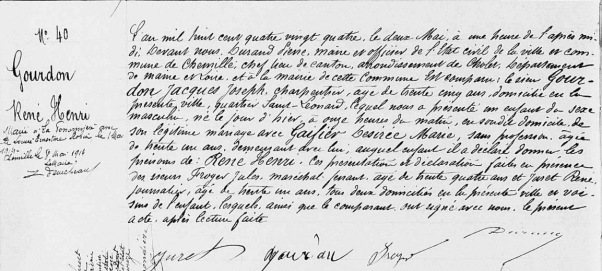 N° 40
Gourdon
René Henri
Marié à la
le
1910
Chemillé le 9 mai 1910
L'an mil huit cent quatre vingt quatre, le deux Mai, à une heure de l'après mi
di; Devant nous, Durand Pierre, maire et officier de l'Etat civil de la ville et com
mune de Chemillé, chef lieu de canton, arrondissement de Cholet, Département
de maine et Loire, et à la mairie de cette Commune Est comparu: le sieur Gour-
don Jacques Joseph, charpentier, âgé de trente cinq ans, domicilié en la
présente ville, quartier Saint-Léonard, lequel nous a présenté un enfant du sexe
masculin, né le jour d'hier à onze heures du matin, en son dit domicile, de
son légitime mariage avec Désirée Marie, sans profession, âgée
de trente un ans, demeurant avec lui, auquel enfant il a déclaré donner les
prénoms de: René Henri. Ces présentation et déclaration faites en présence
des sieurs Froger Jules, maréchal ferant, âgé de trente quatre ans et Juret René,
journalier, âgé de trente un ans, tous deux domiciliés en la présente ville et voi-
sins de l'enfant, lesquels, ainsi que le comparant ont signé avec nous, le présent
acte, après lecture faite
Juret gourdon Froger
Durand